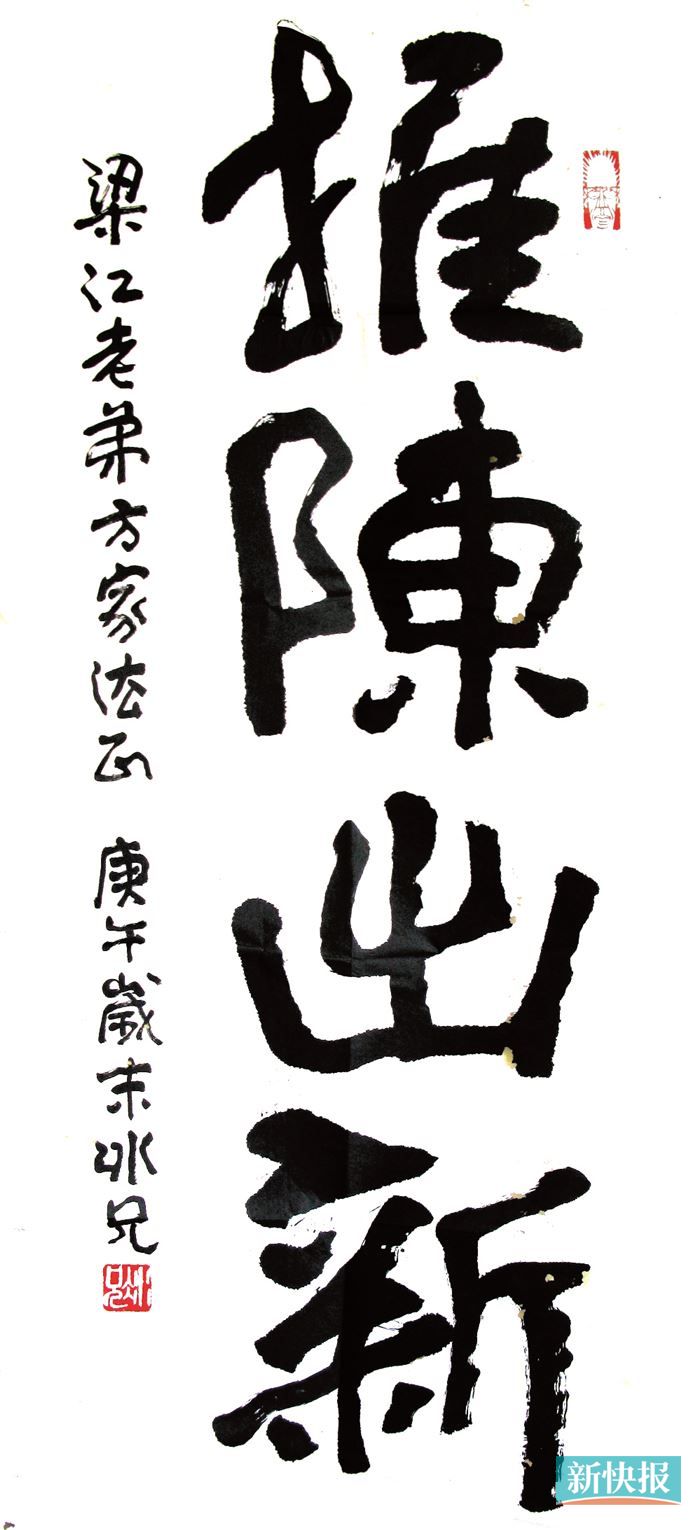 推陳出新
梁江老弟方家法正 庚午歲末冰兄
新快报